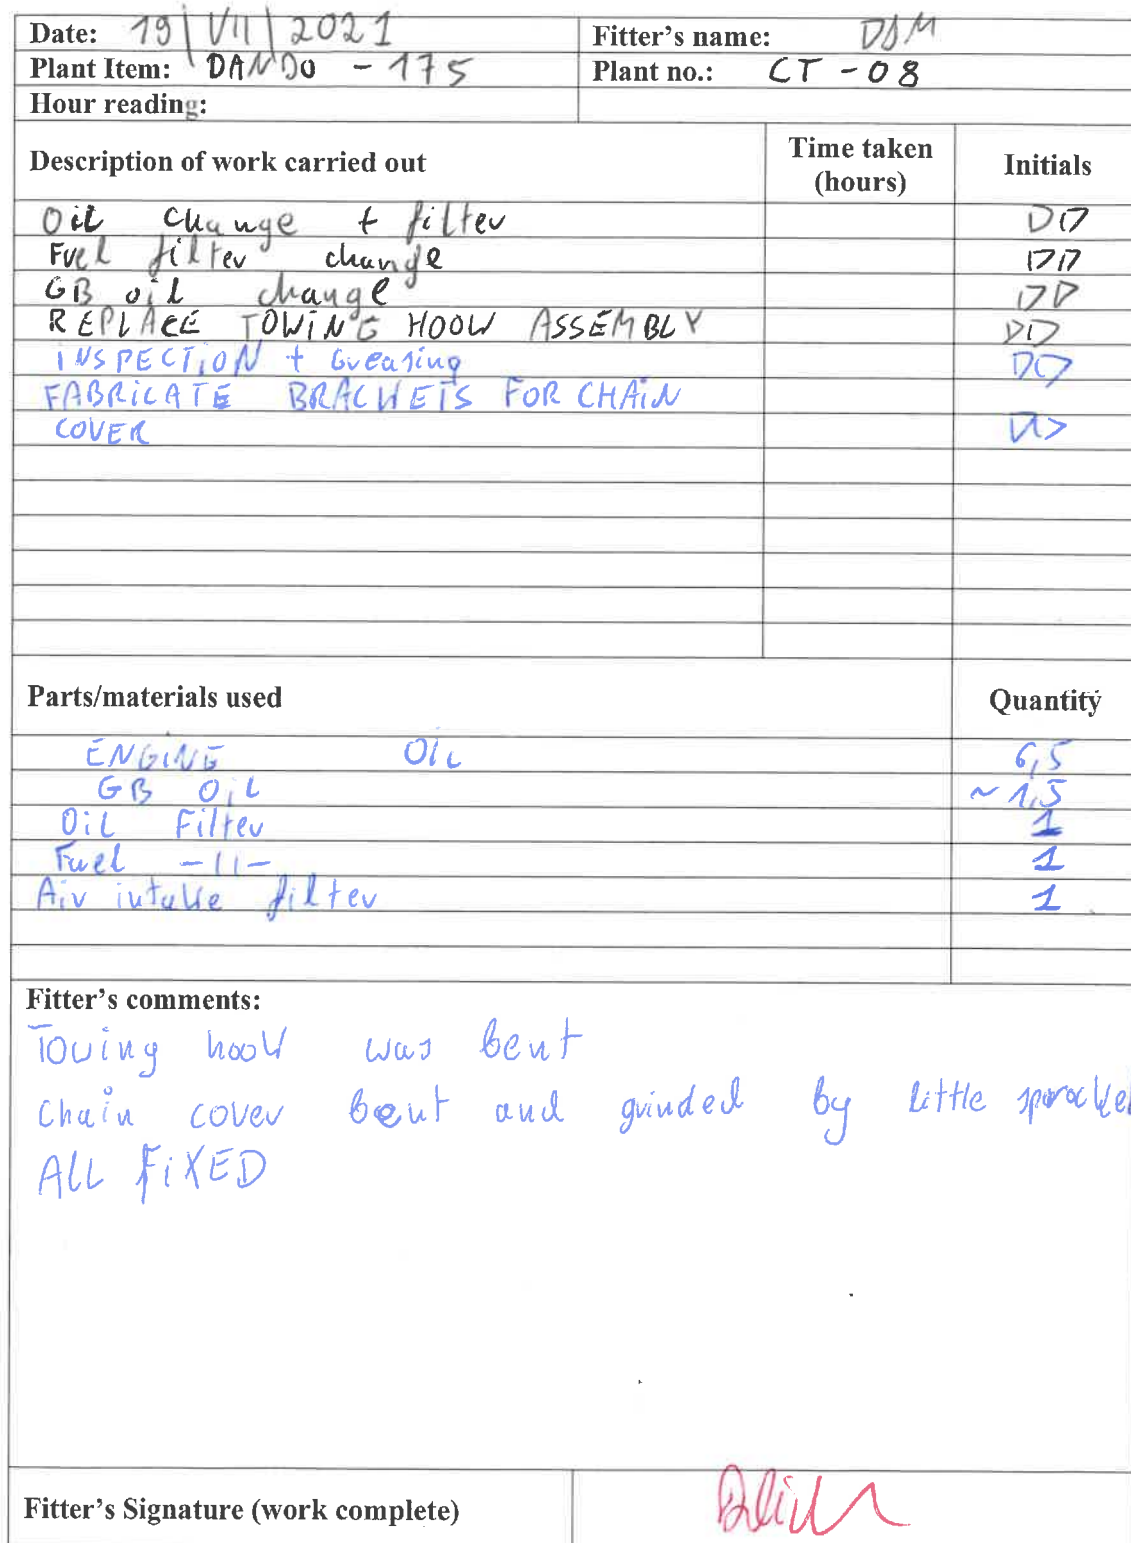 Date: 19 | VII | 2021 Fitter's name: DSM
Plant Item: DANDO - 175 Plant no.: CT - 08
Hour reading:
Description of work carried out Time taken (hours) Initials
Oil change + filter DD
Fuel filter change DD
GB oil change DD
REPLACE TOWING HOOK ASSEMBLY DD
INSPECTION + Greasing DD
FABRICATE BRACKETS FOR CHAIN
COVER
Parts/materials used Quantity
ENGINE OIL 6,5
GB OIL ~ 1,5
Oil Filter 1
Fuel -11- 1
Air intake filter 1
Fitter's comments:
Towing hook was bent
Chain cover bent and grinded by little sprocket
ALL FIXED
Fitter's Signature (work complete)